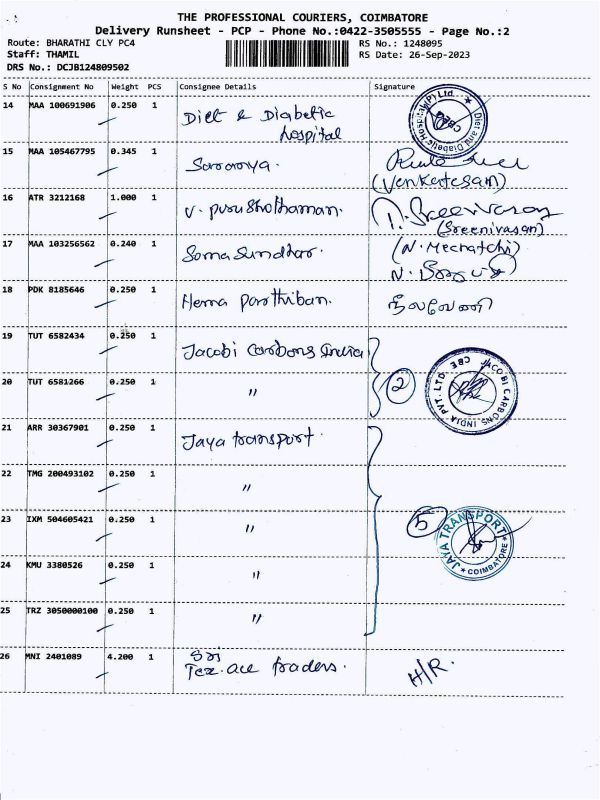 THE PROFESSIONAL COURIERS, COIMBATORE
Delivery Runsheet - PCP - Phone No.:0422-3505555 - Page No.:2
Route: BHARATHI CLY PC4
Staff: THAMIL
DRS No.: DCJB124809502
RS No.: 1248095
RS Date: 26-Sep-2023
S No Consignment No Weight PCS Consignee Details Signature
14 MAA 100691906 0.250 1 Diet & Diabetic
hospital
Diet and Diabetic Hospital (P) Ltd.
15 MAA 105467795 0.345 1
(Venkatesam)
16 ATR 3212168 1.000 1 V. purushothaman.
(Sreenivasan)
17 MAA 103256562 0.240 1 Somasundhar. (N. Meenatchi)
18 PDK 8185646 0.250 1 Hema parthiban. நீலவேணி
19 TUT 6582434 0.250 1 Jacobi carbons India
2
JACOBI CARBONS INDIA PVT. LTD. CBE
20 TUT 6581266 0.250 1 "
21 ARR 30367901 0.250 1 Jaya transport.
22 TMG 200493102 0.250 1 "
23 IXM 504605421 0.250 1 "
5
JAYA TRANSPORT
COIMBATORE
24 KMU 3380526 0.250 1 "
25 TRZ 3050000100 0.250 1 "
26 MNI 2401089 4.200 1 Sri
Tex.ace traders. H/R.